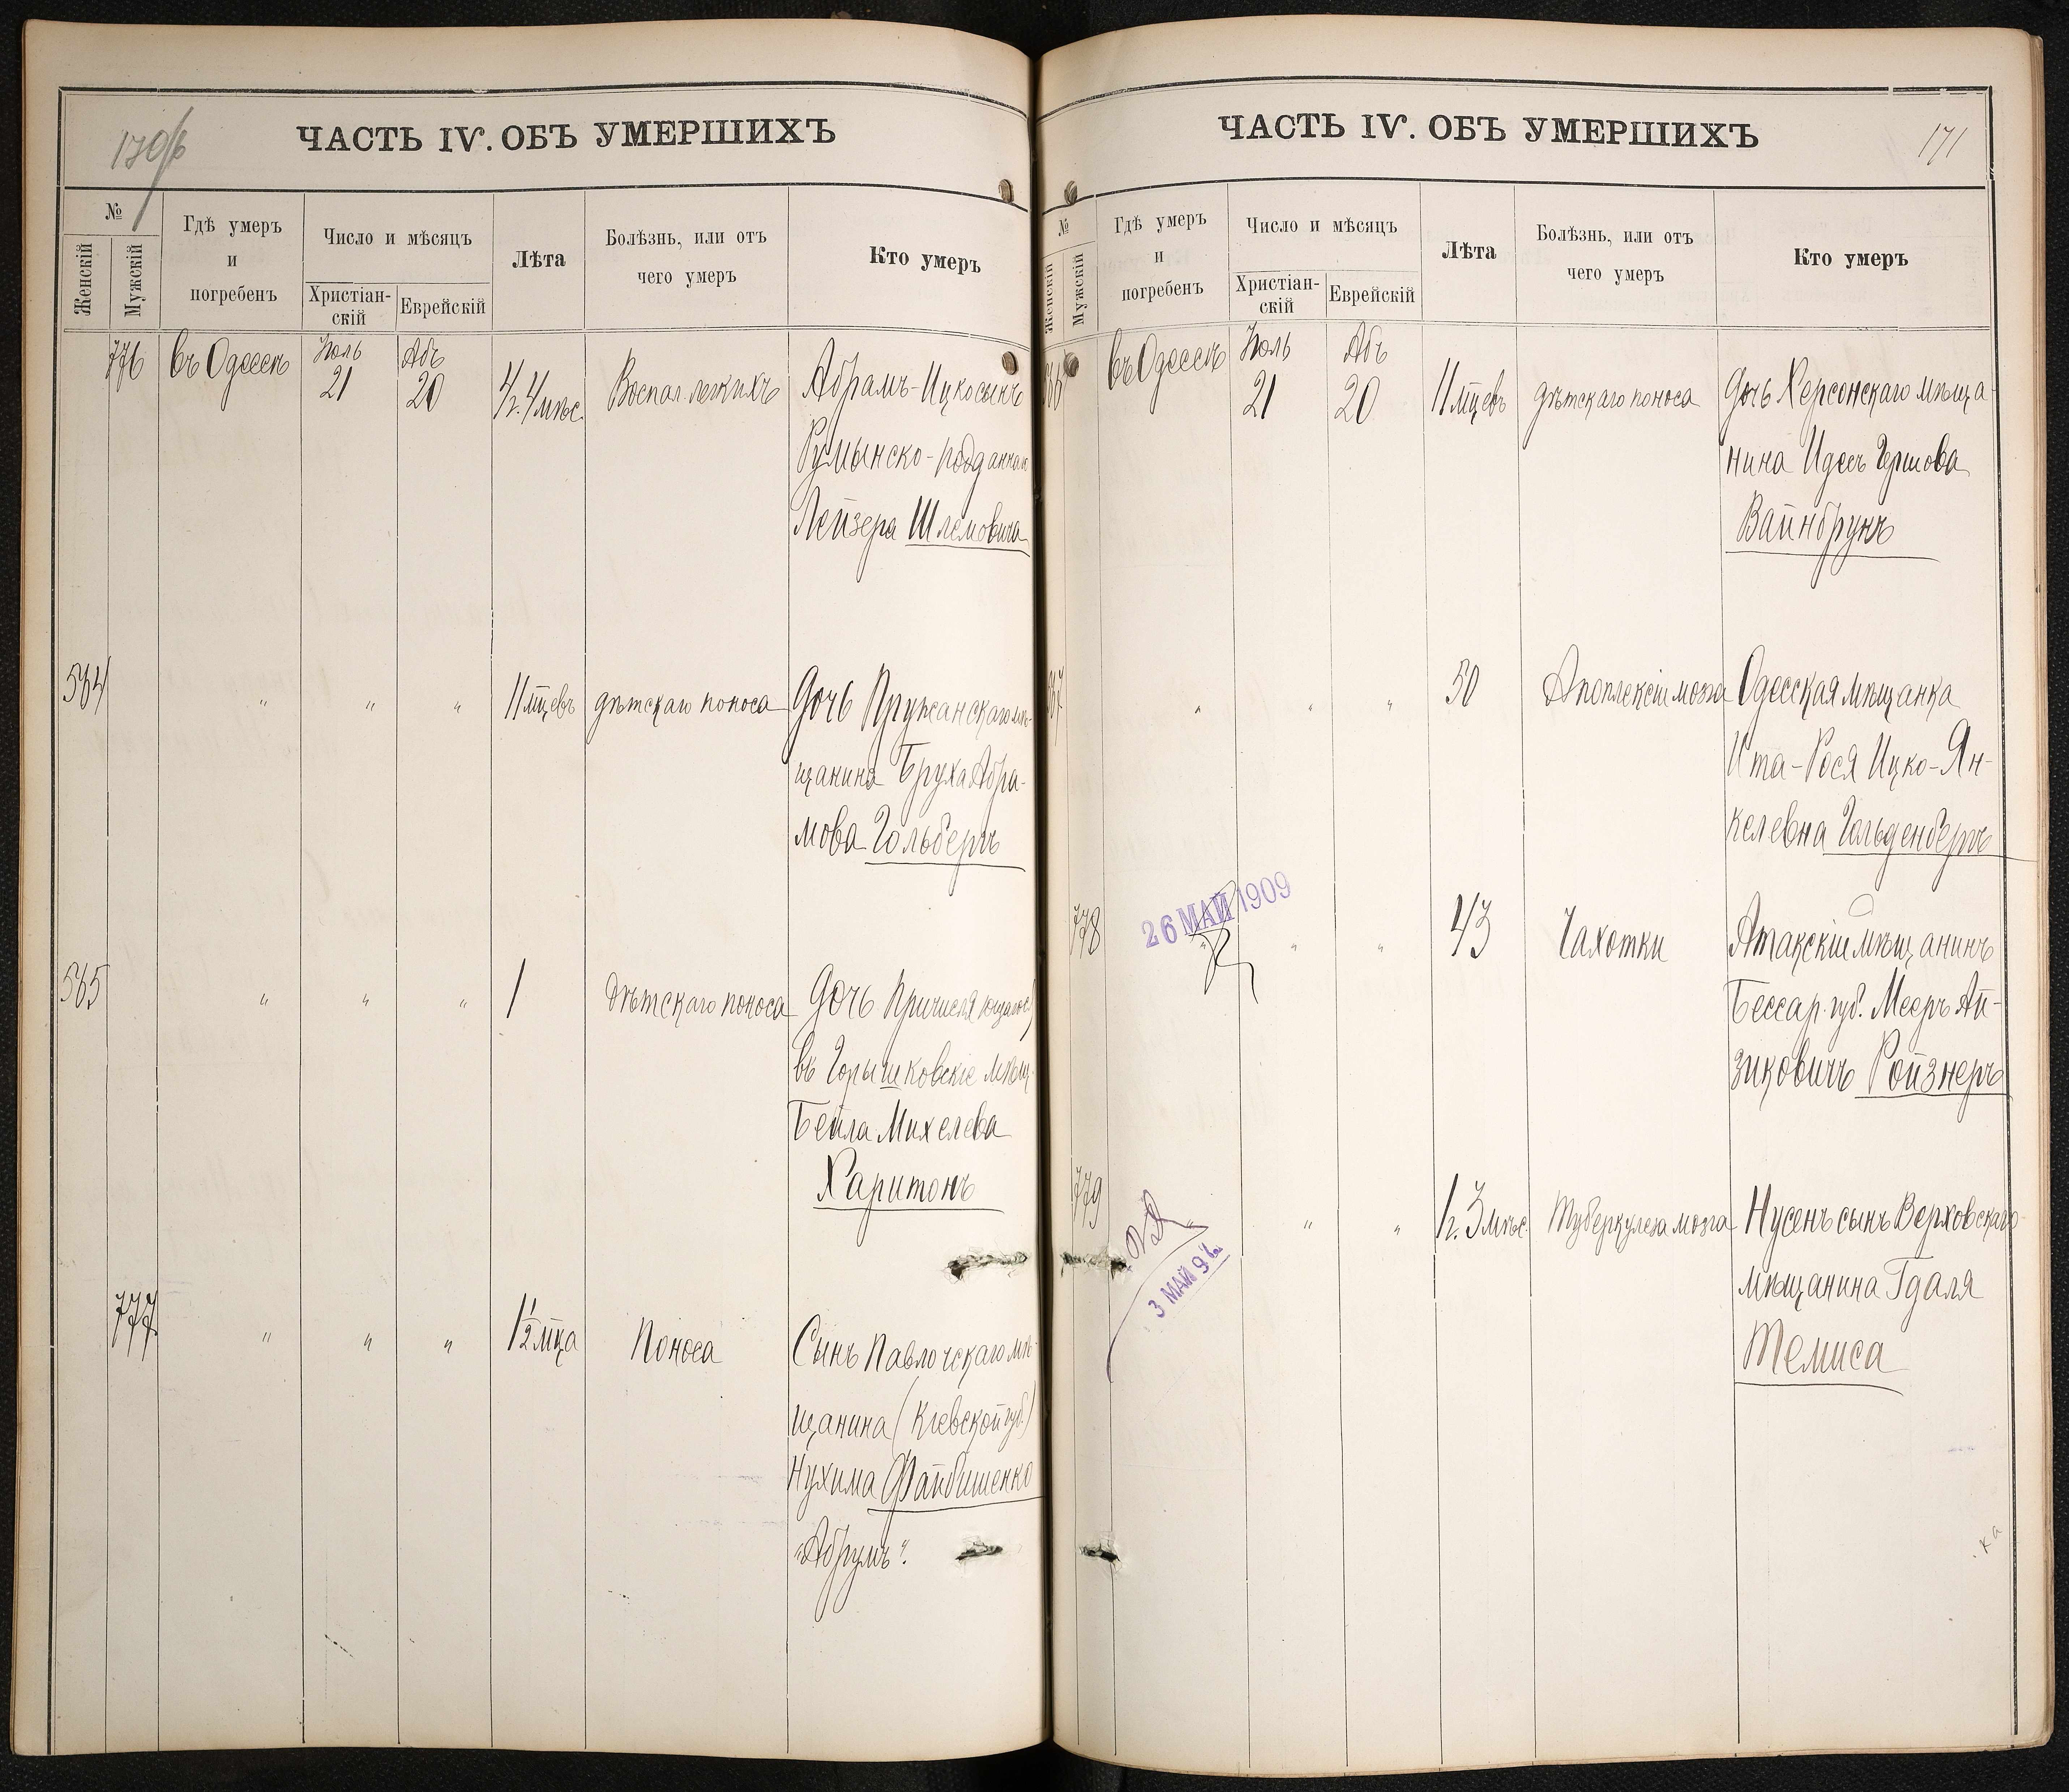 170/б
ЧАСТЬ IV. ОБЪ УМЕРШИХЪ
№
Женскій
Мужскій
Гдѣ умеръ
и
погребенъ
Число и мѣсяцъ
Христіан-
скій
Еврейскій
Лѣта
Болѣзнь, или отъ
чего умеръ
Кто умеръ
776 въ Одессѣ Іюль 21 Абъ 20 Воспал. легкихъ Абрамъ-Ицко сынъ
Румынско-подданнаго
Лейзера Шлемовича
564 " " " 11 мцевъ дѣтскаго поноса Дочь Пружанскаго мѣ-
щанина Бруха Абра-
мова Гольберъ
565 " " " 1 Дѣтскаго поноса Дочь Причисляющагося
въ Горышковскіе мѣщ.
Бейла Михелева
Харитонъ
777 " " " 1 1/2 мца Поноса Сынъ Паволочскаго мѣ-
щанина (Кіевской губ.)
Нухима Файбишенко
"Абрумъ".
171
ЧАСТЬ IV. ОБЪ УМЕРШИХЪ
№
Женскій
Мужскій
Гдѣ умеръ
и
погребенъ
Число и мѣсяцъ
Христіан-
скій
Еврейскій
Лѣта
Болѣзнь, или отъ
чего умеръ
Кто умеръ
566 въ Одессѣ Іюль 21 Абъ 20 11 мцевъ дѣтскаго поноса Дочь Херсонскаго мѣща-
нина Идесъ Гершова
Вайнбрунъ
567 " " " 50 Апоплексіи мозга Одесская мѣщанка
Ита-Рося Ицко-Ян-
келевна Гольденберъ
26 МАЙ 1909
778 " " " 43 Чахотки Атакскій мѣщанинъ
Бессар. губ. Мееръ Ай-
зиковичъ Ройзнеръ
779 " " " 1 г. 3 мѣс. Туберкулеза мозга Нусенъ сынъ Верховскаго
мѣщанина Гдаля
Темиса
3 МАЙ